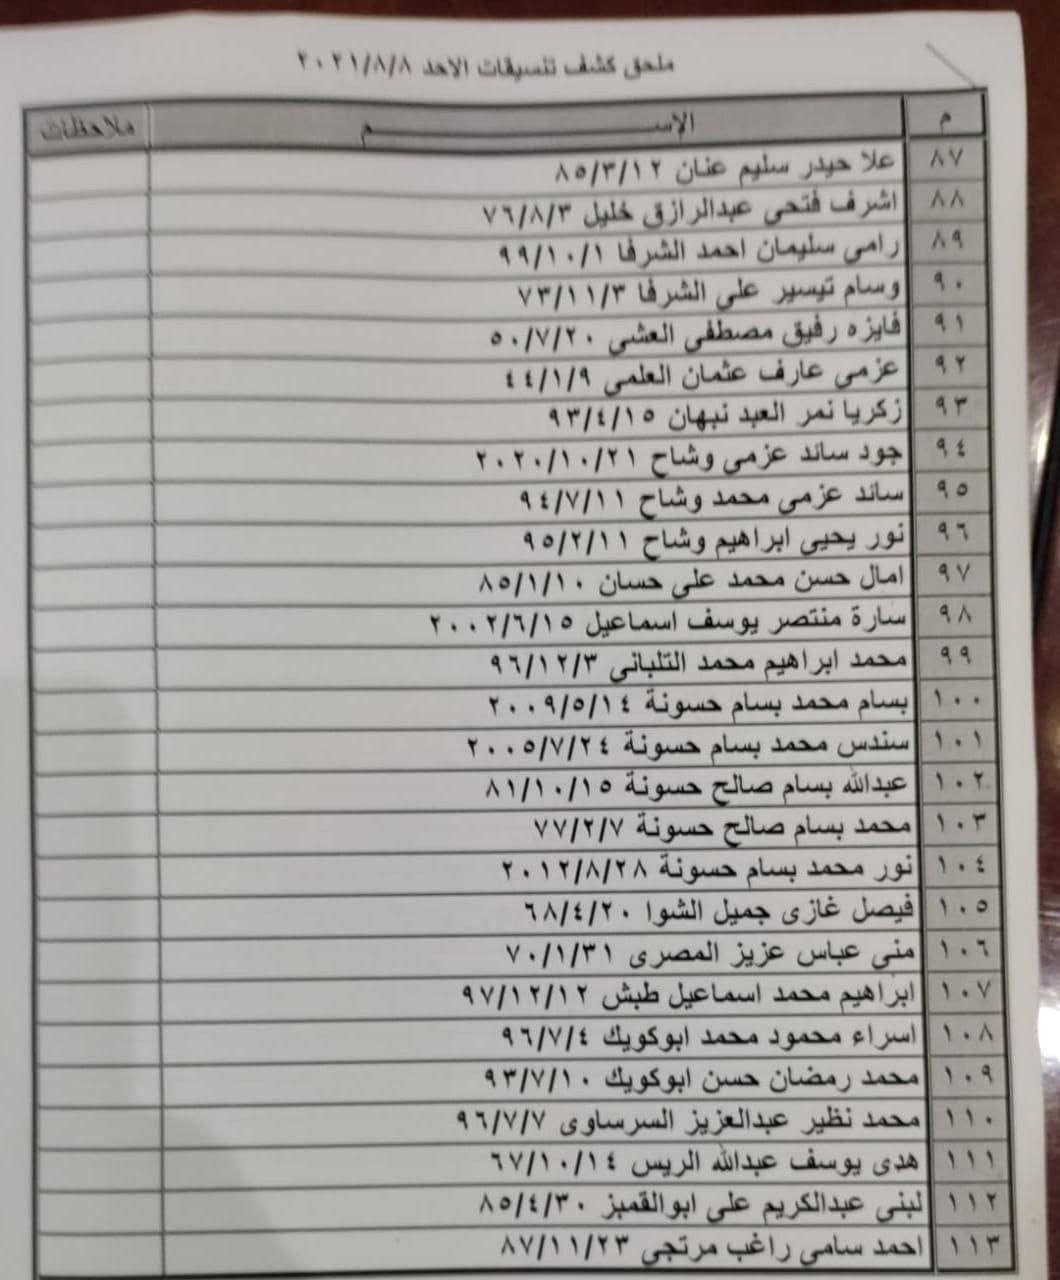 ملحق كشف تنسيقات الاحد ٢٠٢١/٨/٨
م الإســـــم ملاحظات
٨٧ علا حيدر سليم عنان ٨٥/٣/١٢
٨٨ اشرف فتحي عبدالرازق خليل ٧٦/٨/٣
٨٩ رامي سليمان احمد الشرفا ٩٩/١٠/١
٩٠ وسام تيسير علي الشرفا ٧٣/١١/٣
٩١ فايزه رفيق مصطفى العشي ٥٠/٧/٢٠
٩٢ عزمي عارف عثمان العلمي ٤٤/١/٩
٩٣ زكريا نمر العبد نبهان ٩٣/٤/١٥
٩٤ جود سائد عزمي وشاح ٢٠٢٠/١٠/٢١
٩٥ سائد عزمي محمد وشاح ٩٤/٧/١١
٩٦ نور يحيى ابراهيم وشاح ٩٥/٢/١١
٩٧ امال حسن محمد علي حسان ٨٥/١/١٠
٩٨ سارة منتصر يوسف اسماعيل ٢٠٠٢/٦/١٥
٩٩ محمد ابراهيم محمد التلباني ٩٦/١٢/٣
١٠٠ بسام محمد بسام حسونة ٢٠٠٩/٥/١٤
١٠١ سندس محمد بسام حسونة ٢٠٠٥/٧/٢٤
١٠٢ عبدالله بسام صالح حسونة ٨١/١٠/١٥
١٠٣ محمد بسام صالح حسونة ٧٧/٢/٧
١٠٤ نور محمد بسام حسونة ٢٠١٢/٨/٢٨
١٠٥ فيصل غازي جميل الشوا ٦٨/٤/٢٠
١٠٦ منى عباس عزيز المصري ٧٠/١/٣١
١٠٧ ابراهيم محمد اسماعيل طبش ٩٧/١٢/١٢
١٠٨ اسراء محمود محمد ابوكويك ٩٦/٧/٤
١٠٩ محمد رمضان حسن ابوكويك ٩٣/٧/١٠
١١٠ محمد نظير عبدالعزيز السرساوي ٩٦/٧/٧
١١١ هدى يوسف عبدالله الريس ٦٧/١٠/١٤
١١٢ لبنى عبدالكريم علي ابوالقمبز ٨٥/٤/٣٠
١١٣ احمد سامي راغب مرتجى ٨٧/١١/٢٣